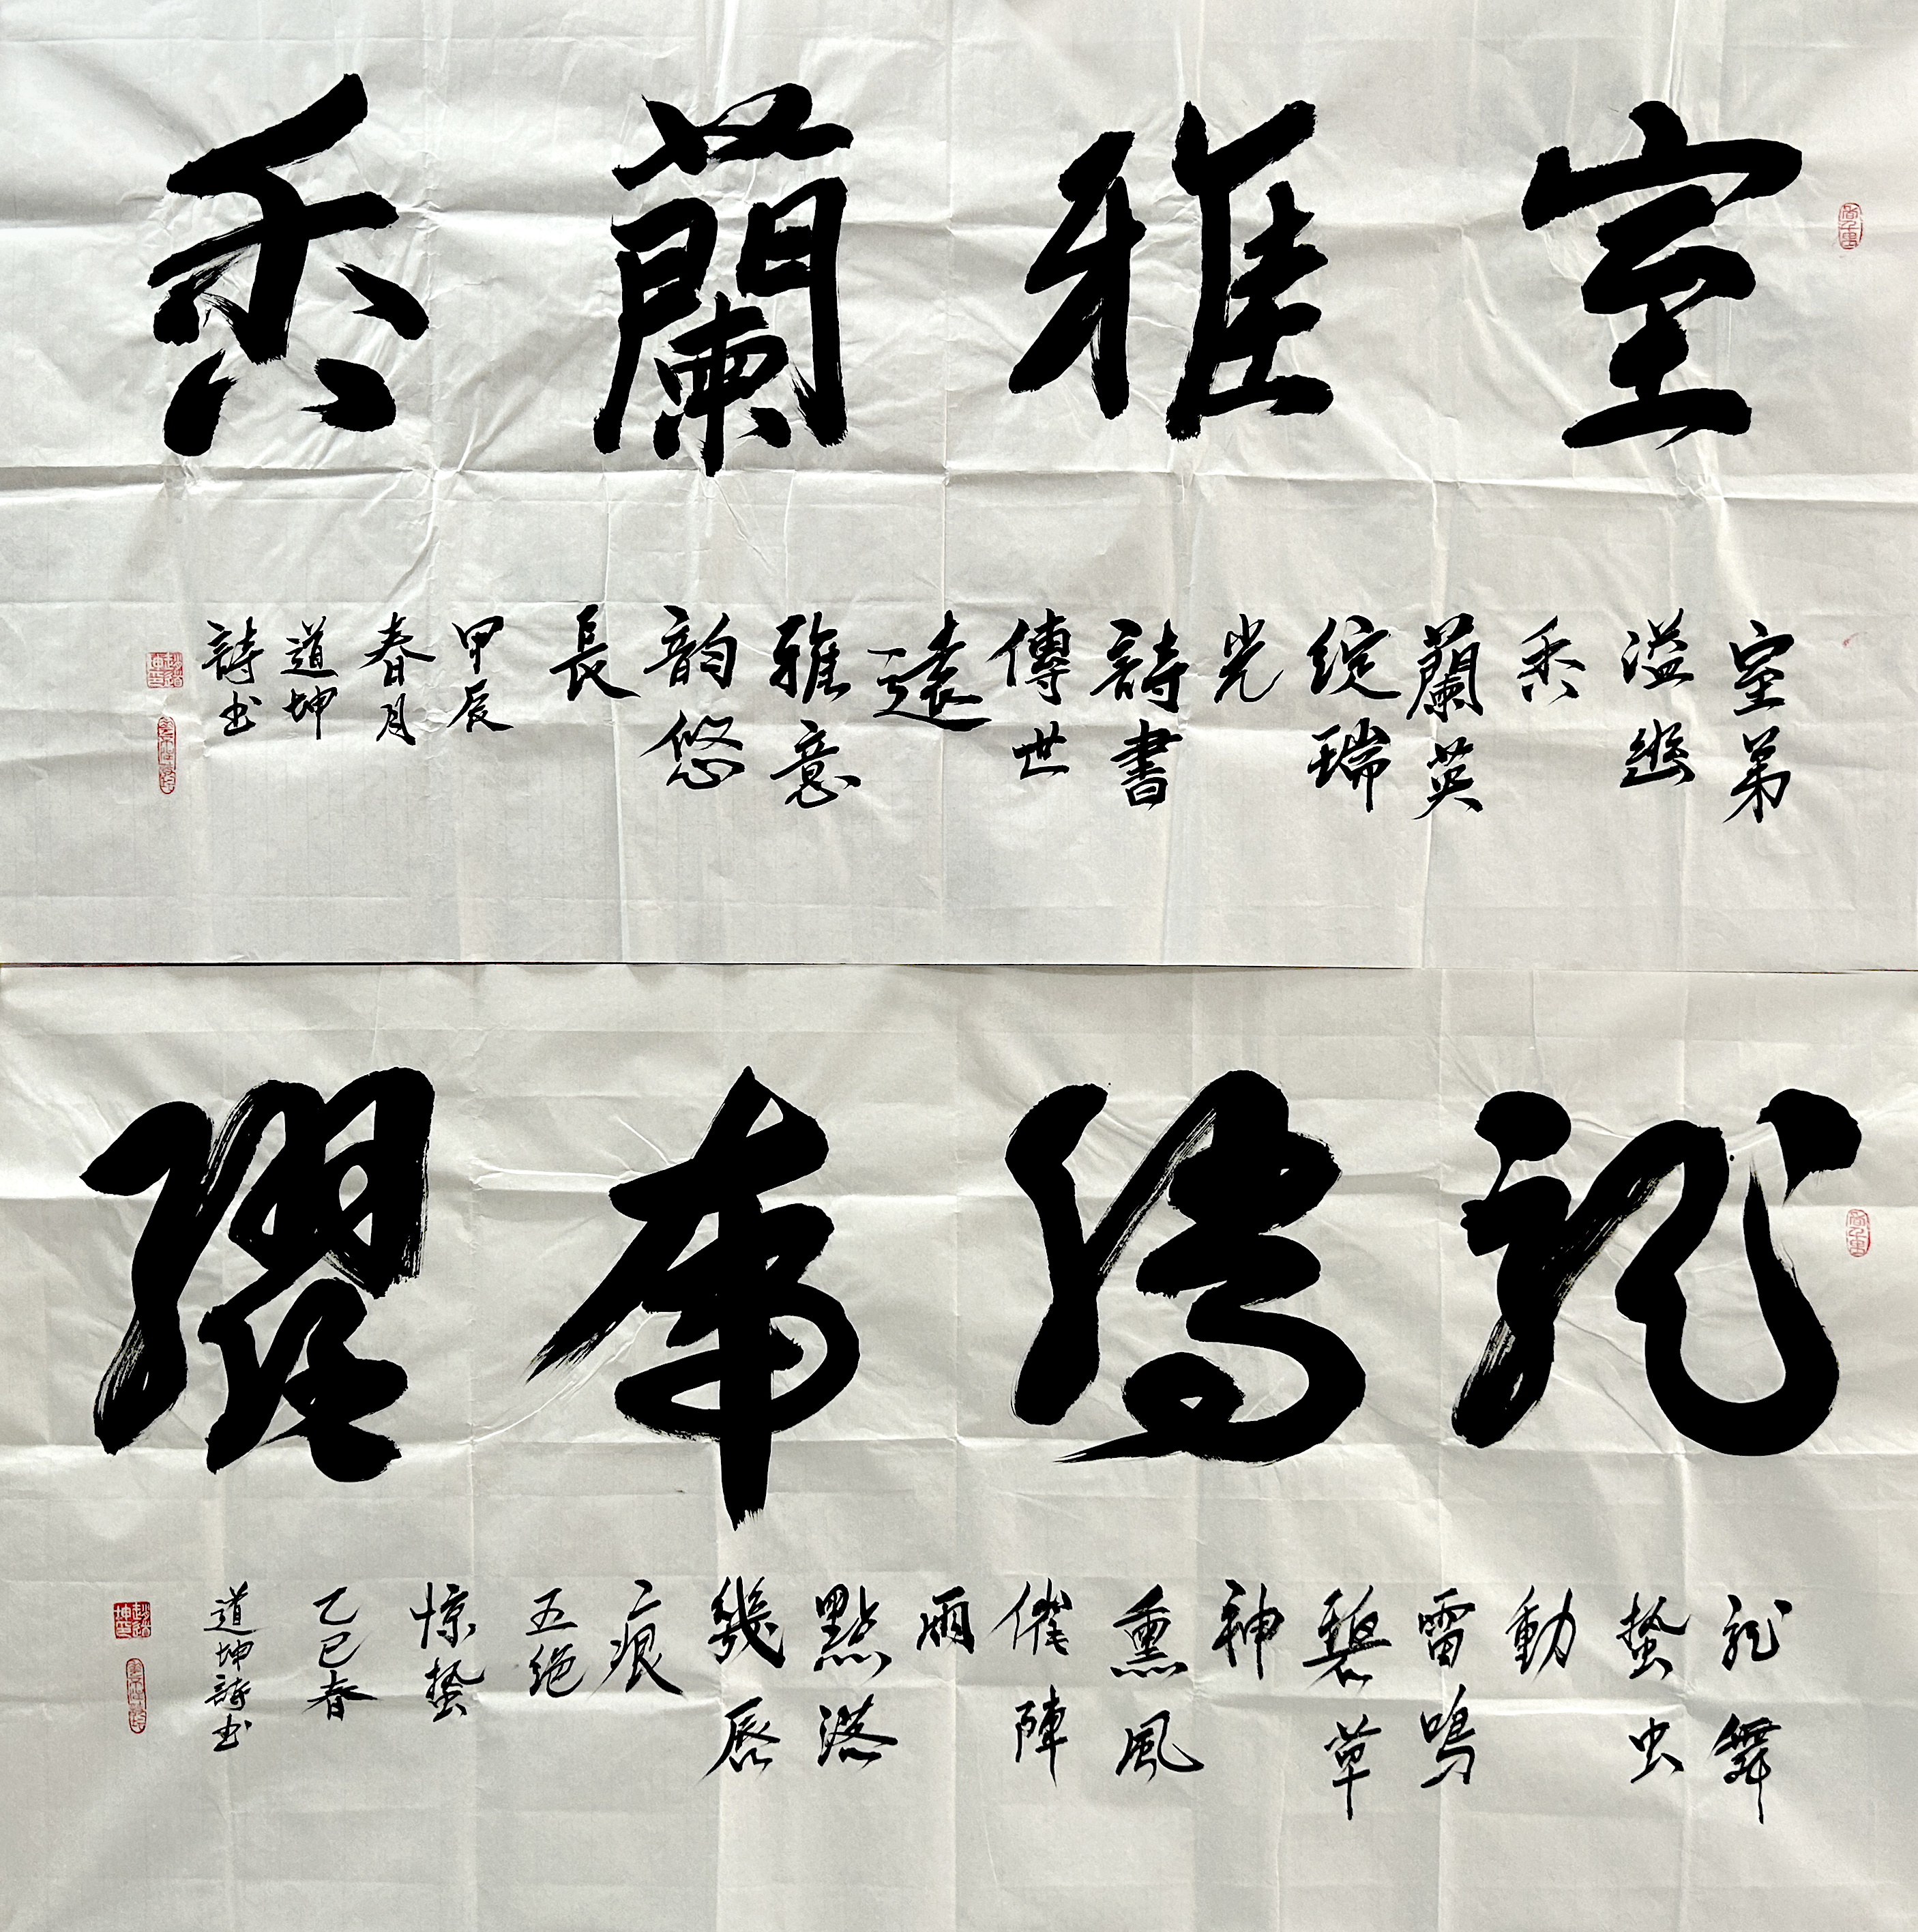 室雅蘭香
室弟
溢幽
香
蘭英
綻瑞
光
詩書
傳世
遠
雅意
韵悠
長
甲辰
春月
道坤
詩书
龍騰虎躍
龙舞
蛰虫
動
雷鳴
碧草
神
熏風
催陣
雨
點
幾
痕
五绝
惊蛰
乙巳春
道坤詩书